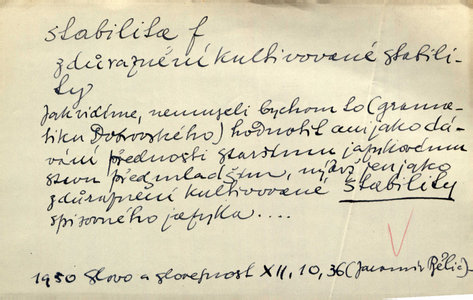 stabilita f
zdůraznění kultivované stabili-
ty
Jak vidíme, nemuseli bychom to (grama-
tiku Dobrovského) hodnotit ani jako dá-
vání přednosti staršímu jazykovému
stavu před mladším, nýbrž jen jako
zdůraznění kultivované stability
spisovného jazyka....
1950 Slovo a slovesnost XII, 10, 36 (Jaromír Bělič)